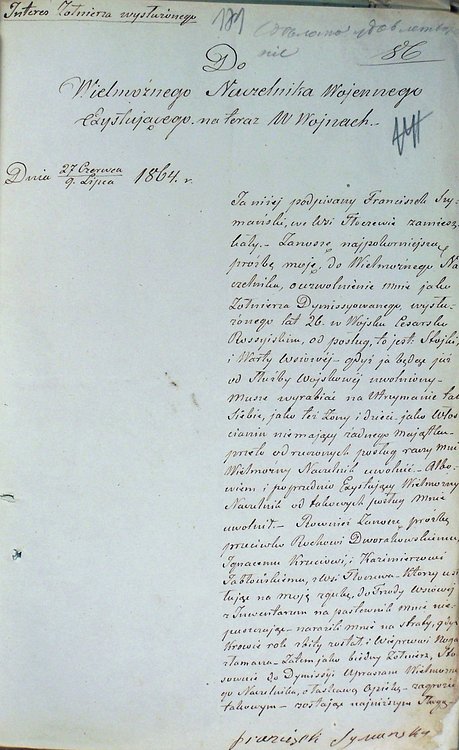 Interes Żołnierza wysłużonego
Do
Wielmożnego Naczelnika Wojennego
Exystującego na teraz W Wojnach.
86
Dnia 27 Czerwca / 9 Lipca 1864. r.
Ja niżej podpisany Franciszek Szy-
mański, we Wsi Tłoczewie zamiesz-
kały. Zanoszę najpokorniejszą
próźbę moję, do Wielmożnego Na-
czelnika, o uwolnienie mnie jako
Żołnierza Dymissyowanego, wysłu-
żonego lat 26. w Wojsku Cesarsko
Rossyiskim, od posług, to jest: Stójki,
i Warty Wsiowéj gdyż ja będąc już
od Służby Wojskowéj uwolniony
Musze wyrabiać na Utrzymanie tak
Siebie, jako też Żony i dzieci jako Włos-
cianin niemający żadnego Majątku
przeto od rzeczonych posług raczy mnie
Wielmożny Naczelnik uwolnić. Albo-
wiem i poprzednio Exystujący Wielmożny
Naczelnik od takowych posług mnie
uwolnił. Rownież Zanoszę prozbę
przeciwko Rochowi Dworakowskiemu,
Ignacemu i Kazimierzowi
Jabłońskiemu, z Wsi Którzy
na moją zgubę, do Wsiowéj
z Inwentarzem na pastewnik mnie nie
narazili mnie na straty, gdyż
Krowie rok zbity został, i Wieprzowi Noga
złamana Zatem jako biedny Żołnierz,
do Dymissyi Upraszam Wielmożne-
go Naczelnika, o łaskawą Opiekę
takowym zostając najniższym Sługą
Franciszek Symanski